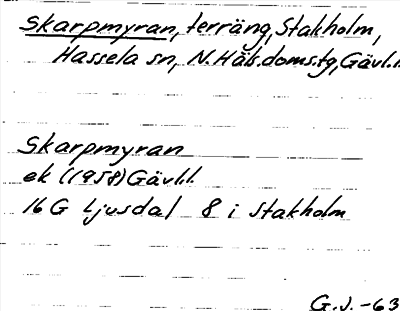 Skarpmyran, terräng, Stakholm,
Hassela sn, N. Häls. doms. tg, Gävl.l.
Skarpmyran
ek (1958) Gävl.l.
16 G Ljusdal 8 i Stakholm
G.J. -63